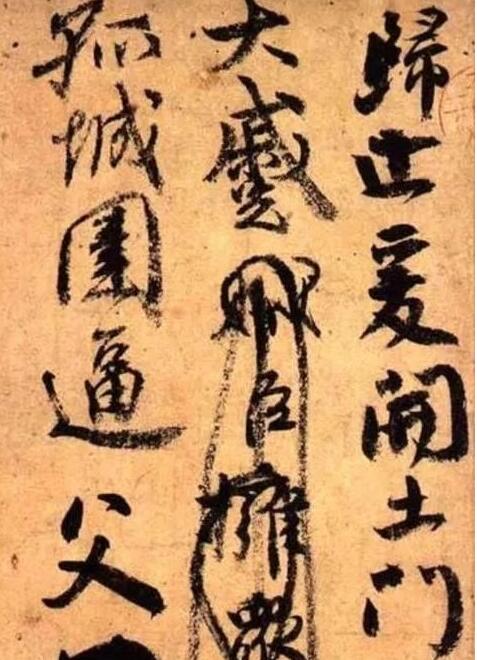 歸止爰開土門
大蹙賊臣擁衆
孤城圍逼父